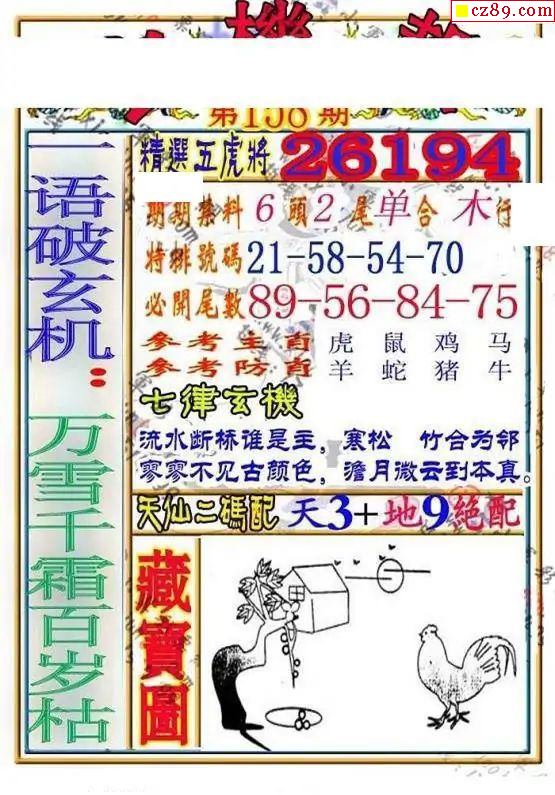 cz89.com
機
第158期
精選五虎將 26194
期期禁料 6 頭 2 尾 单 合 木 行
特排號碼 21-58-54-70
必開尾數 89-56-84-75
参考生肖 虎 鼠 鸡 马
参考防肖 羊 蛇 猪 牛
七律玄機
流水断桥谁是主，寒松 竹合为邻
寥寥不见古颜色，澹月微云到本真。
天仙二碼配 天3+地9絕配
藏寶圖
一语破玄机：万雪千霜百岁枯